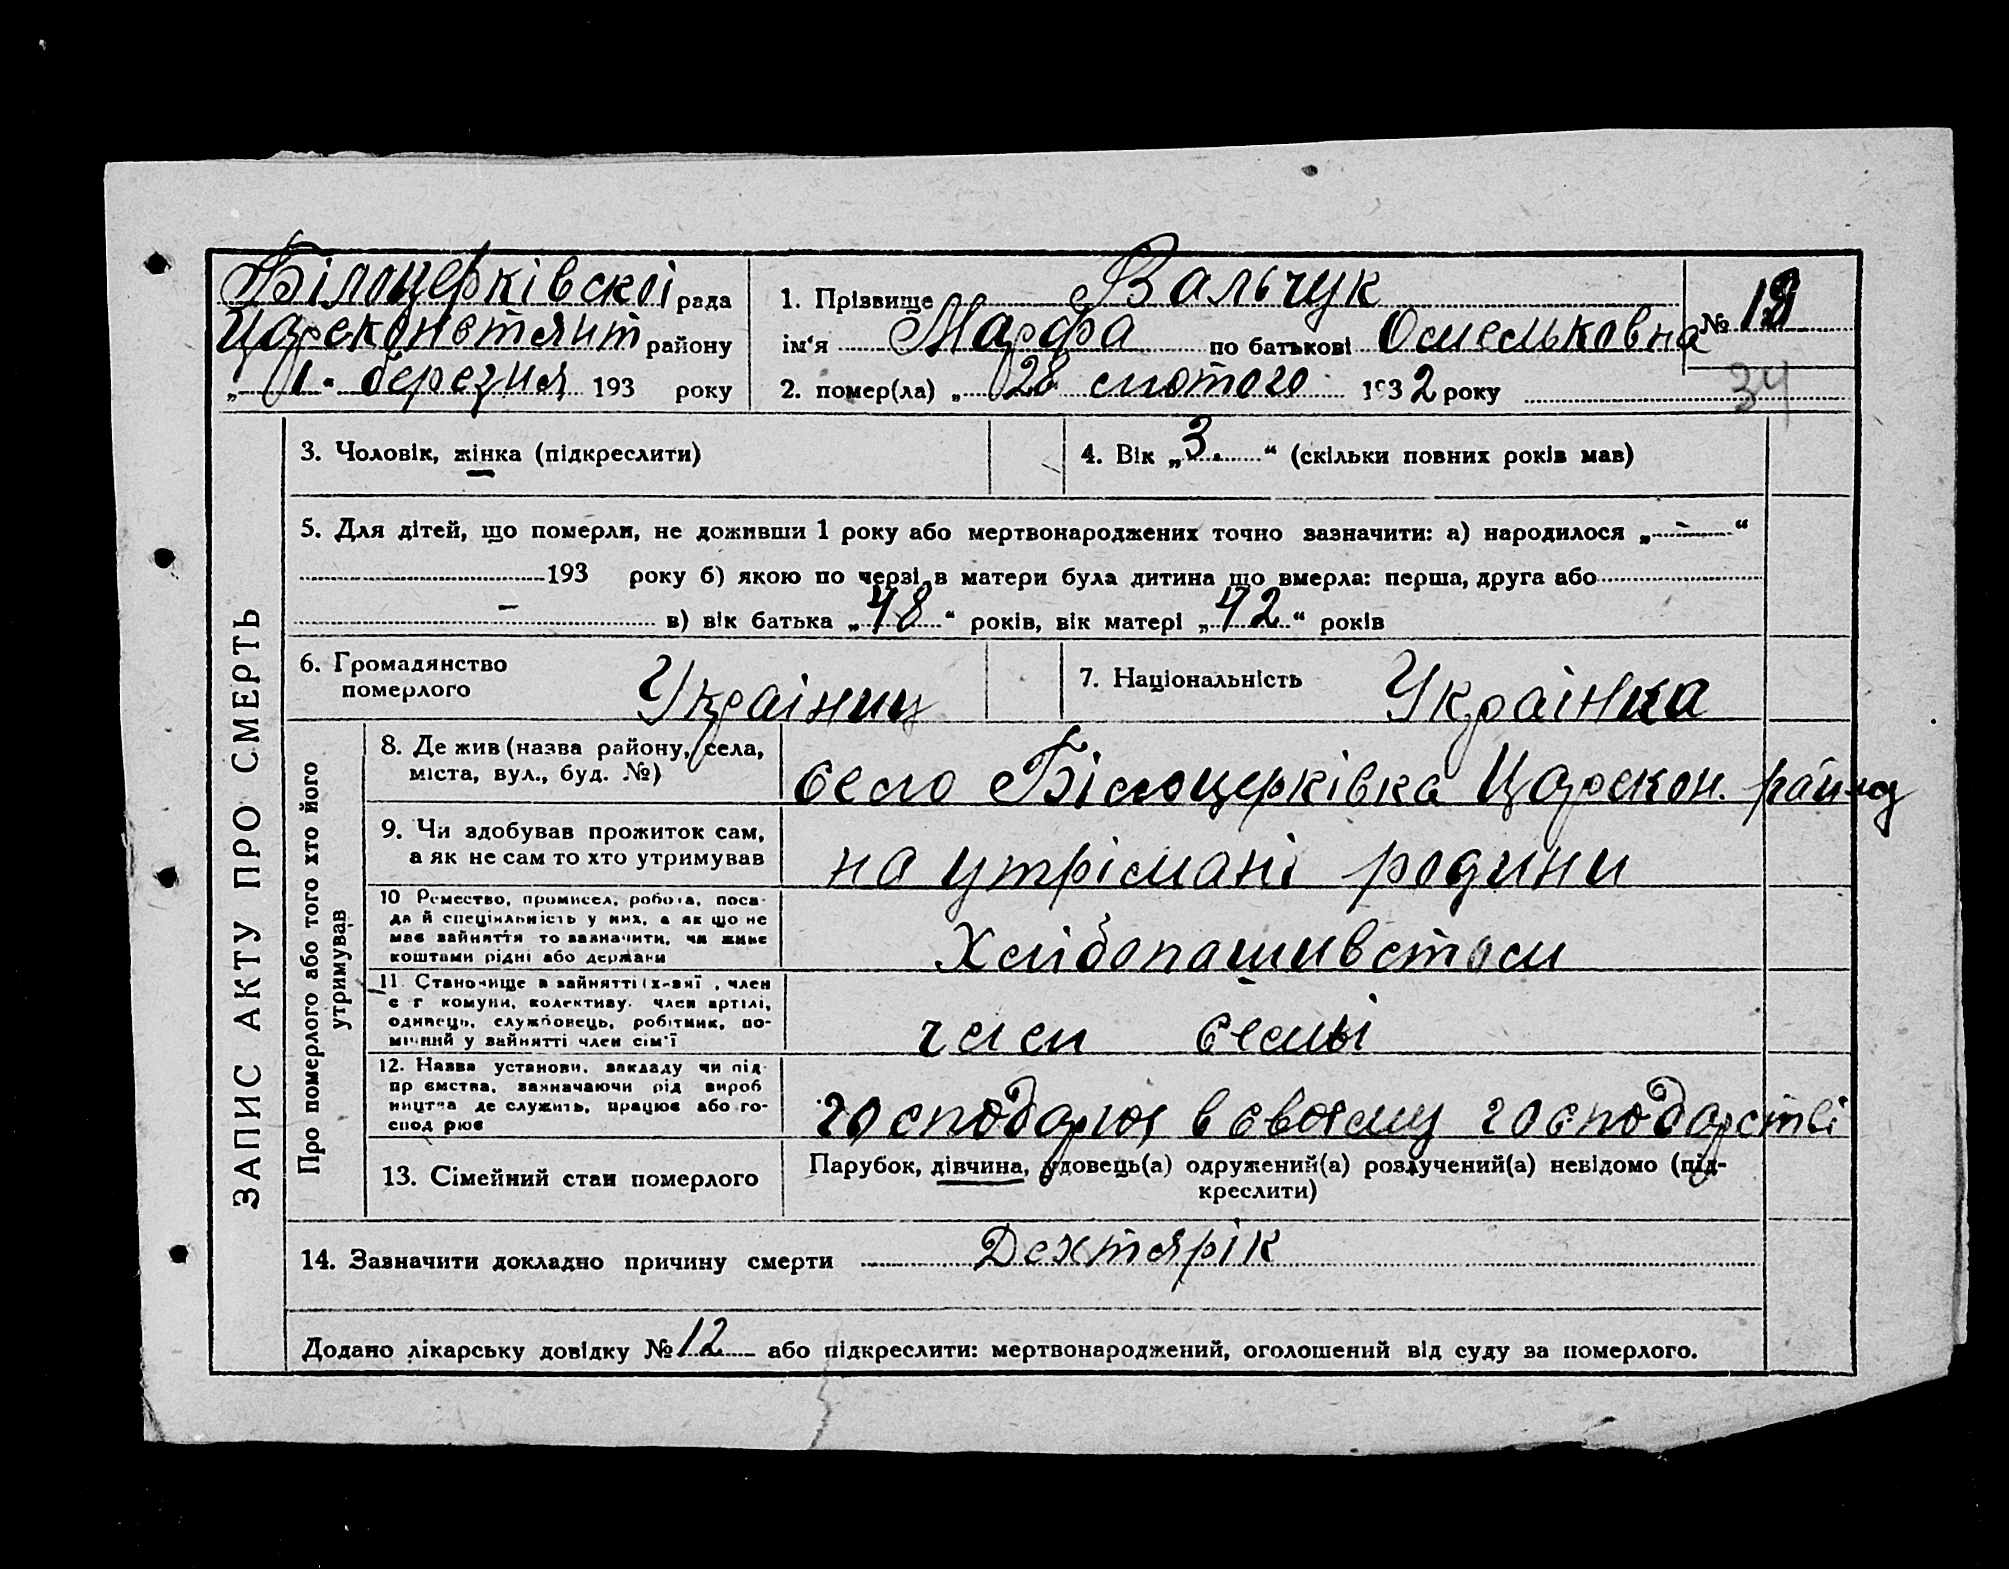 Білоцерківскоі рада
Царсконстянт району
„ 1. березня 193 року
1. Прізвище Вальчук
ім'я Марфа по батькові Омельковна
№ 18
2. помер(ла) „ 28 лютого 1932 року
34
ЗАПИС АКТУ ПРО СМЕРТЬ
3. Чоловік, жінка (підкреслити)
4. Вік „3." (скільки повних років мав)
5. Для дітей, що померли, не доживши 1 року або мертвонароджених точно зазначити: а) народилося „ – "
193 року б) якою по черзі в матери була дитина що вмерла: перша, друга або
– в) вік батька „48" років, вік матері „42" років
6. Громадянство
померлого
Украіниц
7. Національність Украінка
Про померлого або того хто його
утримував
8. Де жив (назва району, села,
міста, вул., буд. №)
село Білоцерківка Царскон. району
9. Чи здобував прожиток сам,
а як не сам то хто утримував
на утрімані родини
10 Ремество, промисел, робота, поса-
да й спеціяльність у них, а як що не
має зайняття то зазначити, чи живе
коштами рідні або держави
Хлібопашивством
11. Становище в зайнятті (х-вні, член
с г комуни, колективу, член артілі,
одинець, службовець, робітник, по-
мічний у зайнятті член сім'ї
член семьі
12. Назва установи, закладу чи під-
приємства, зазначаючи рід вироб
ництва де служить, працює або го-
спод рює
господарює в своєму господарстві
13. Сімейний стан померлого
Парубок, дівчина, удовець(а) одружений(а) розлучений(а) невідомо (під-
креслити)
14. Зазначити докладно причину смерти Дехтярік
Додано лікарську довідку № 12 або підкреслити: мертвонароджений, оголошений від суду за померлого.